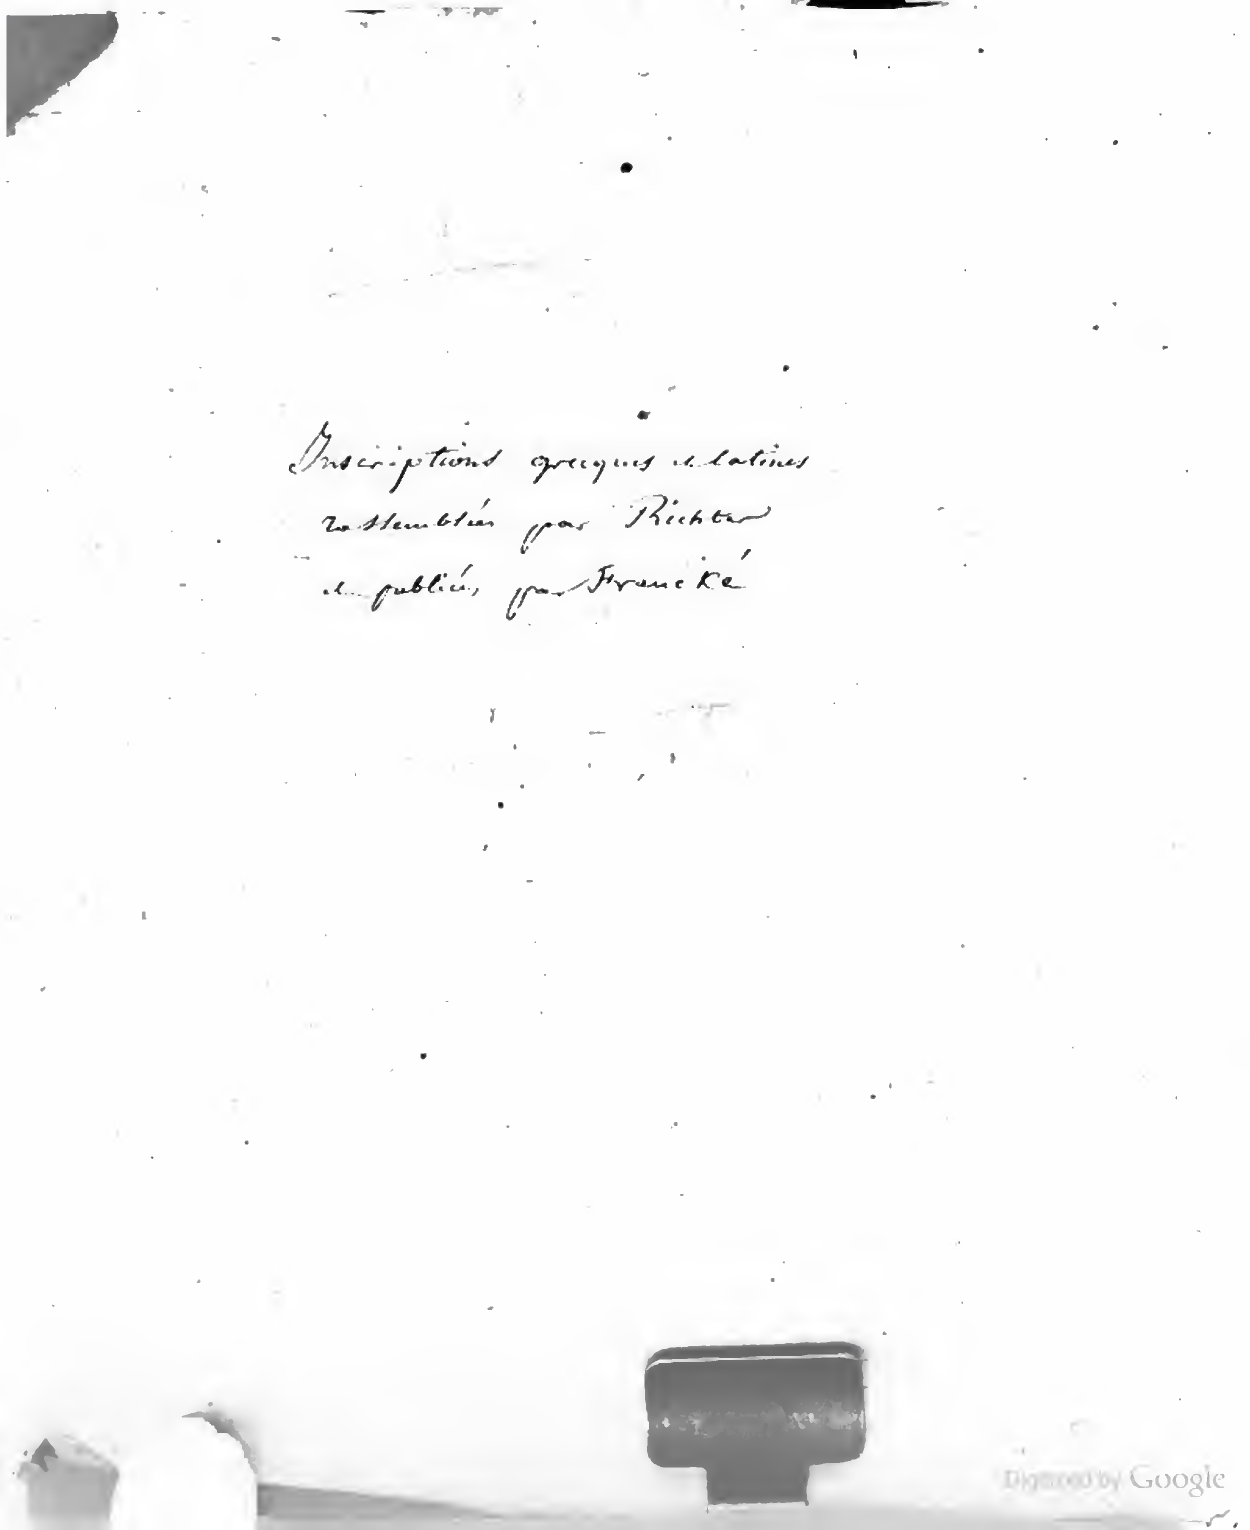 Inscriptions grecques et latines
rassemblées par Richter
et publiées par Francké
Digitized by Google